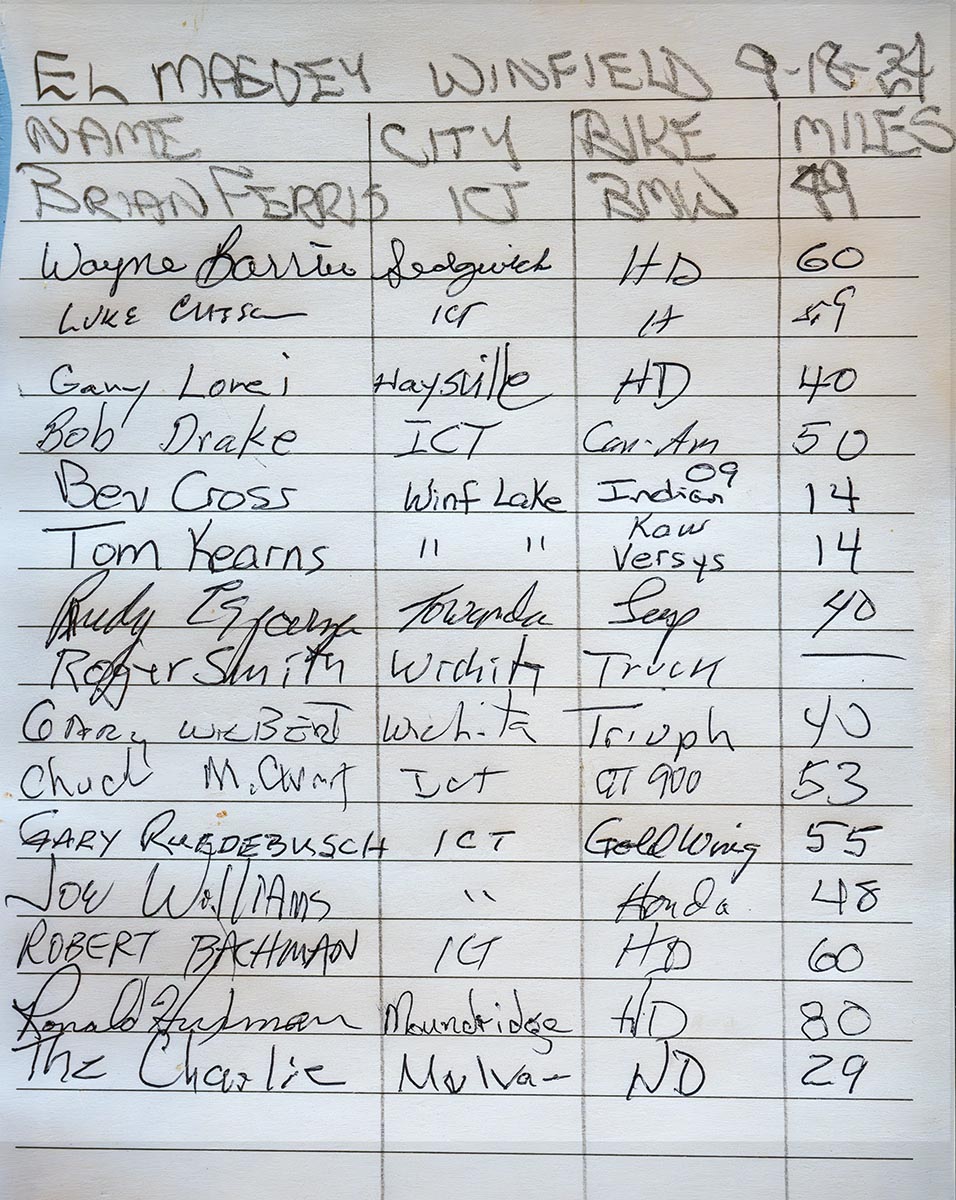 EL MAGUEY WINFIELD 9-18-24
NAME CITY BIKE MILES
BRIAN FERRIS ICT BMW 49
Wayne Sedgwick HD 60
LUKE ICT 59
Gary Lorei Haysville HD 40
Bob Drake ICT Can-Am 50
Bev Cross Winf Lake Indian 09 14
Tom Kearns " " Kaw Versys 14
Rudy Towanda 40
Roger Smith Wichita Truck —
GARY WILBERT Wichita Triuph 40
Chuck ICT GT 900 53
GARY RUEDEBUSCH ICT GoldWing 55
JOE WillIAMS " Honda 48
ROBERT BACHMAN ICT HD 60
Ronald Moundridge HD 80
The Charlie Mulvane HD 29